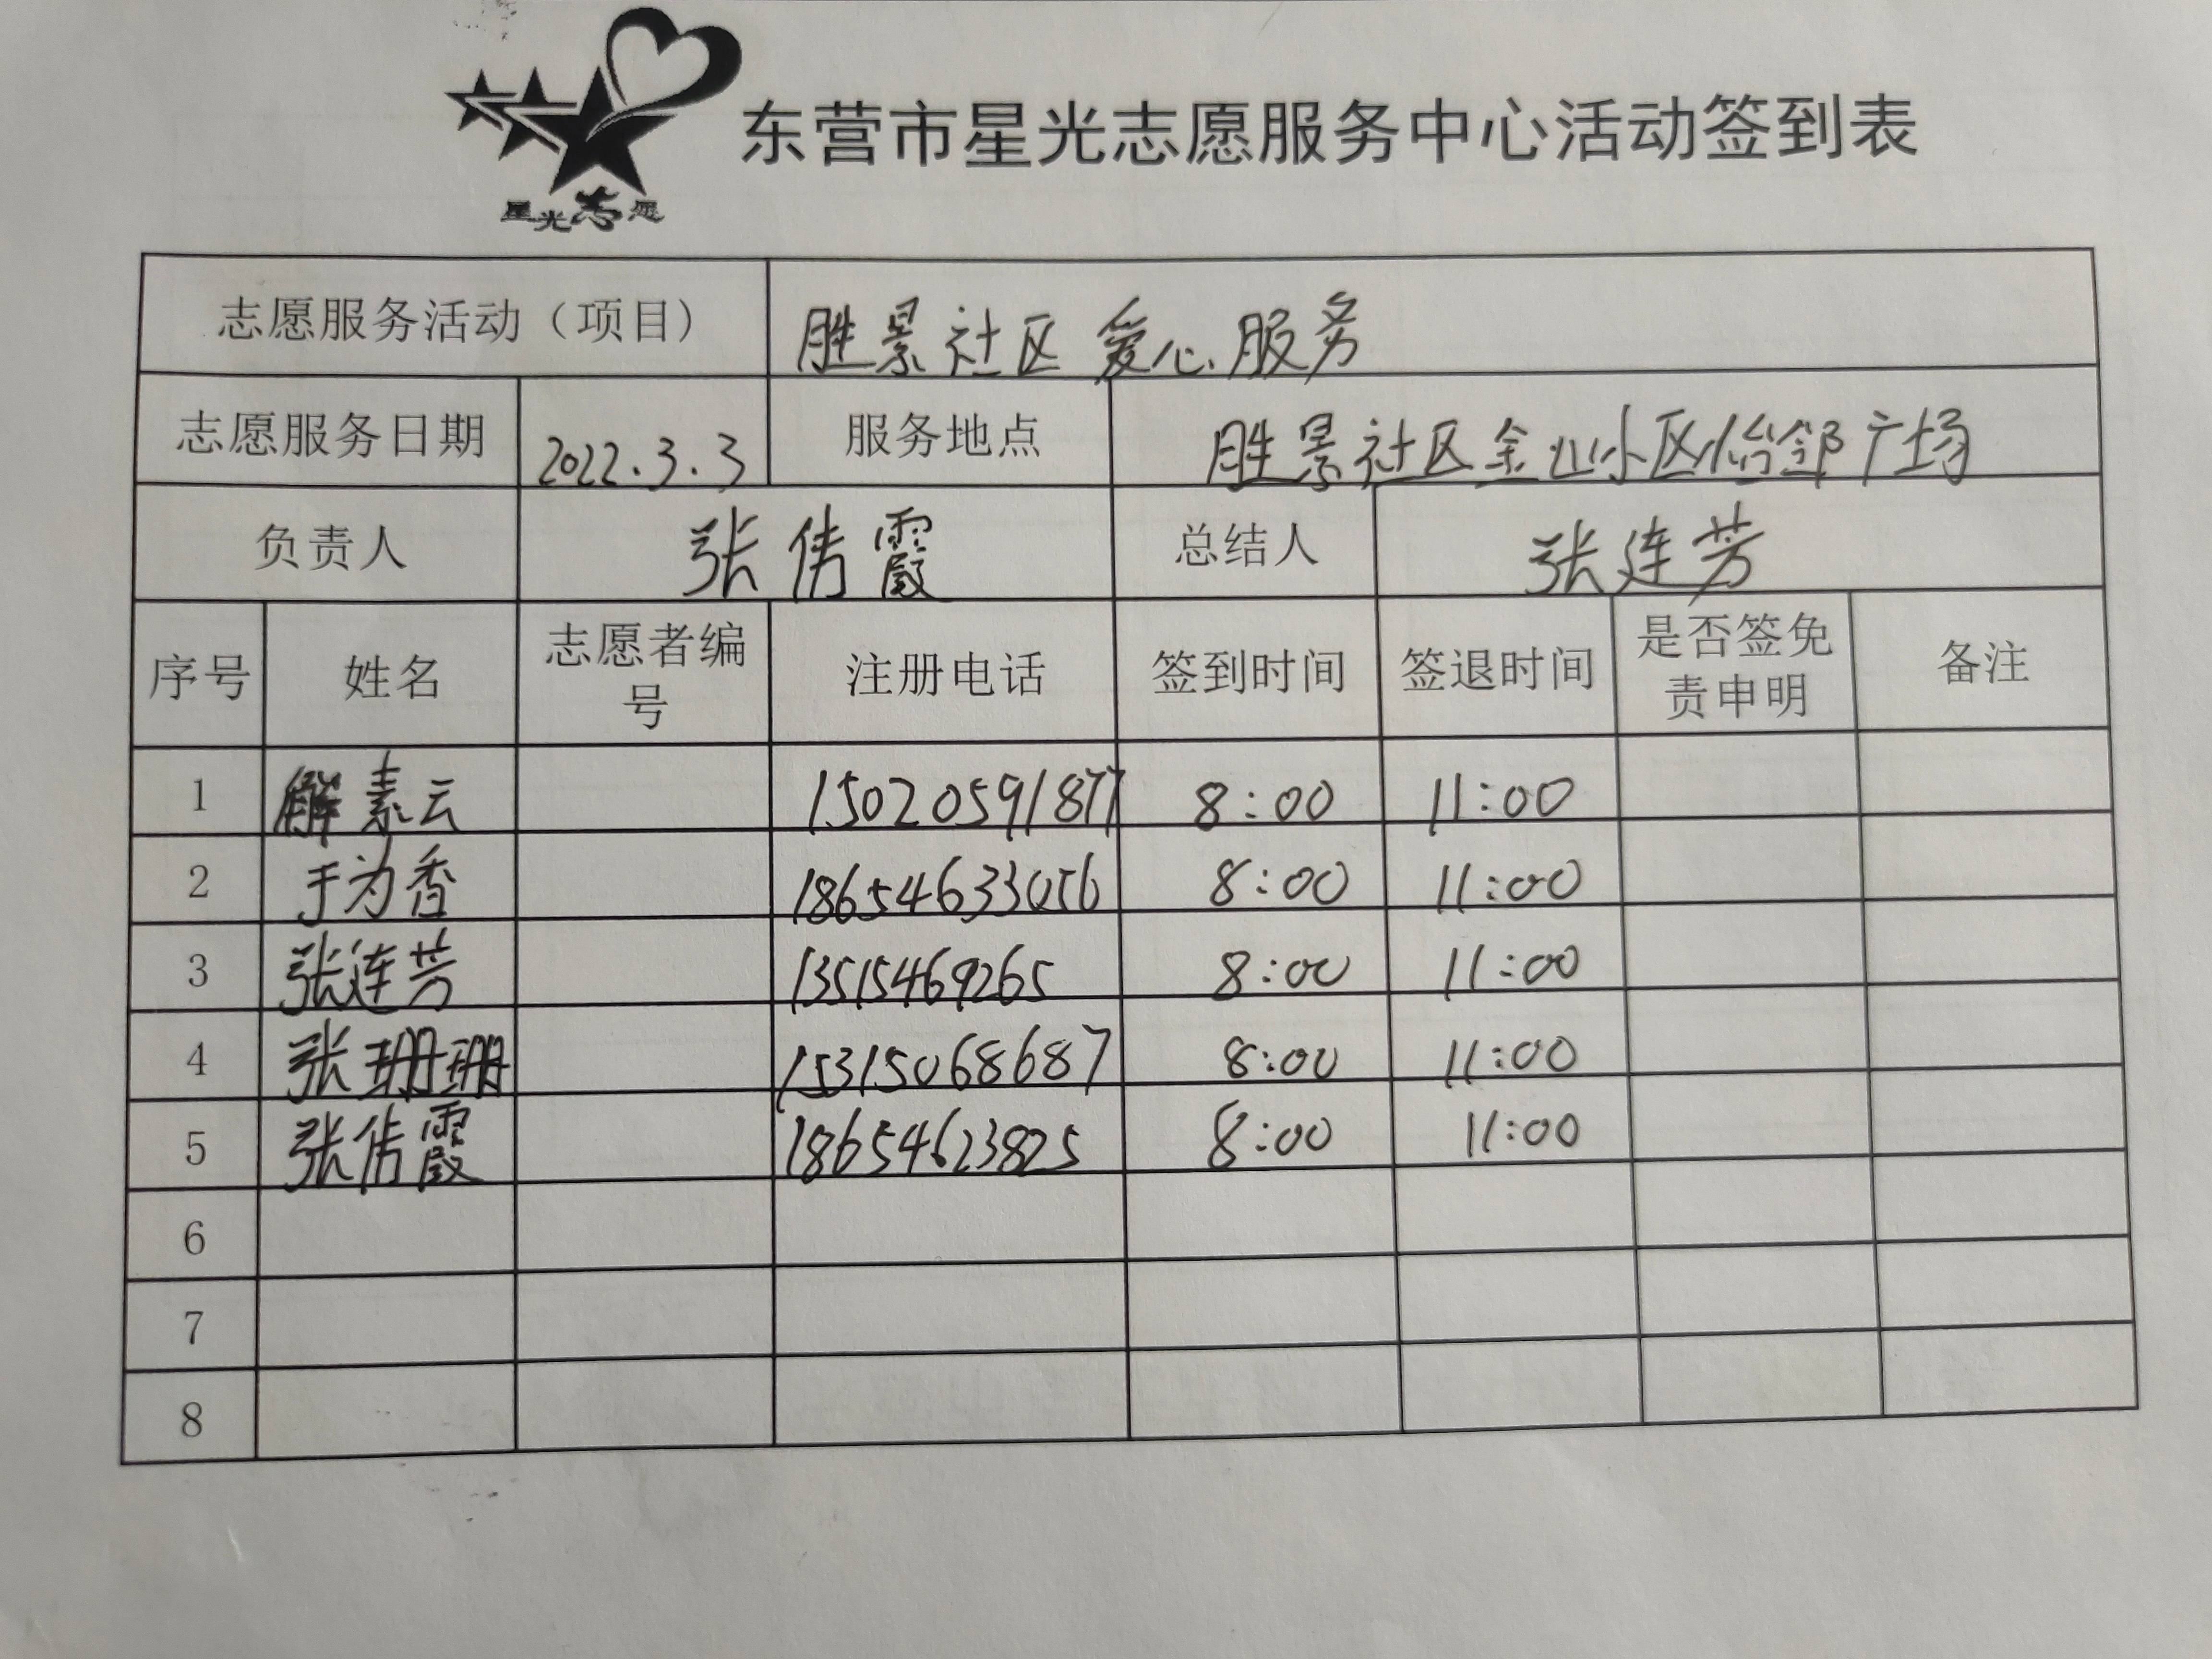 东营市星光志愿服务中心活动签到表
星光志愿
志愿服务活动（项目） 胜景社区爱心服务
志愿服务日期 2022.3.3 服务地点 胜景社区金山小区怡邻广场
负责人 张倩霞 总结人 张连芳
序号 姓名 志愿者编号 注册电话 签到时间 签退时间 是否签免责申明 备注
1 解素云 15020591877 8:00 11:00
2 于为香 18654633056 8:00 11:00
3 张连芳 13515469265 8:00 11:00
4 张珊珊 15315068687 8:00 11:00
5 张倩霞 18654623825 8:00 11:00
6
7
8